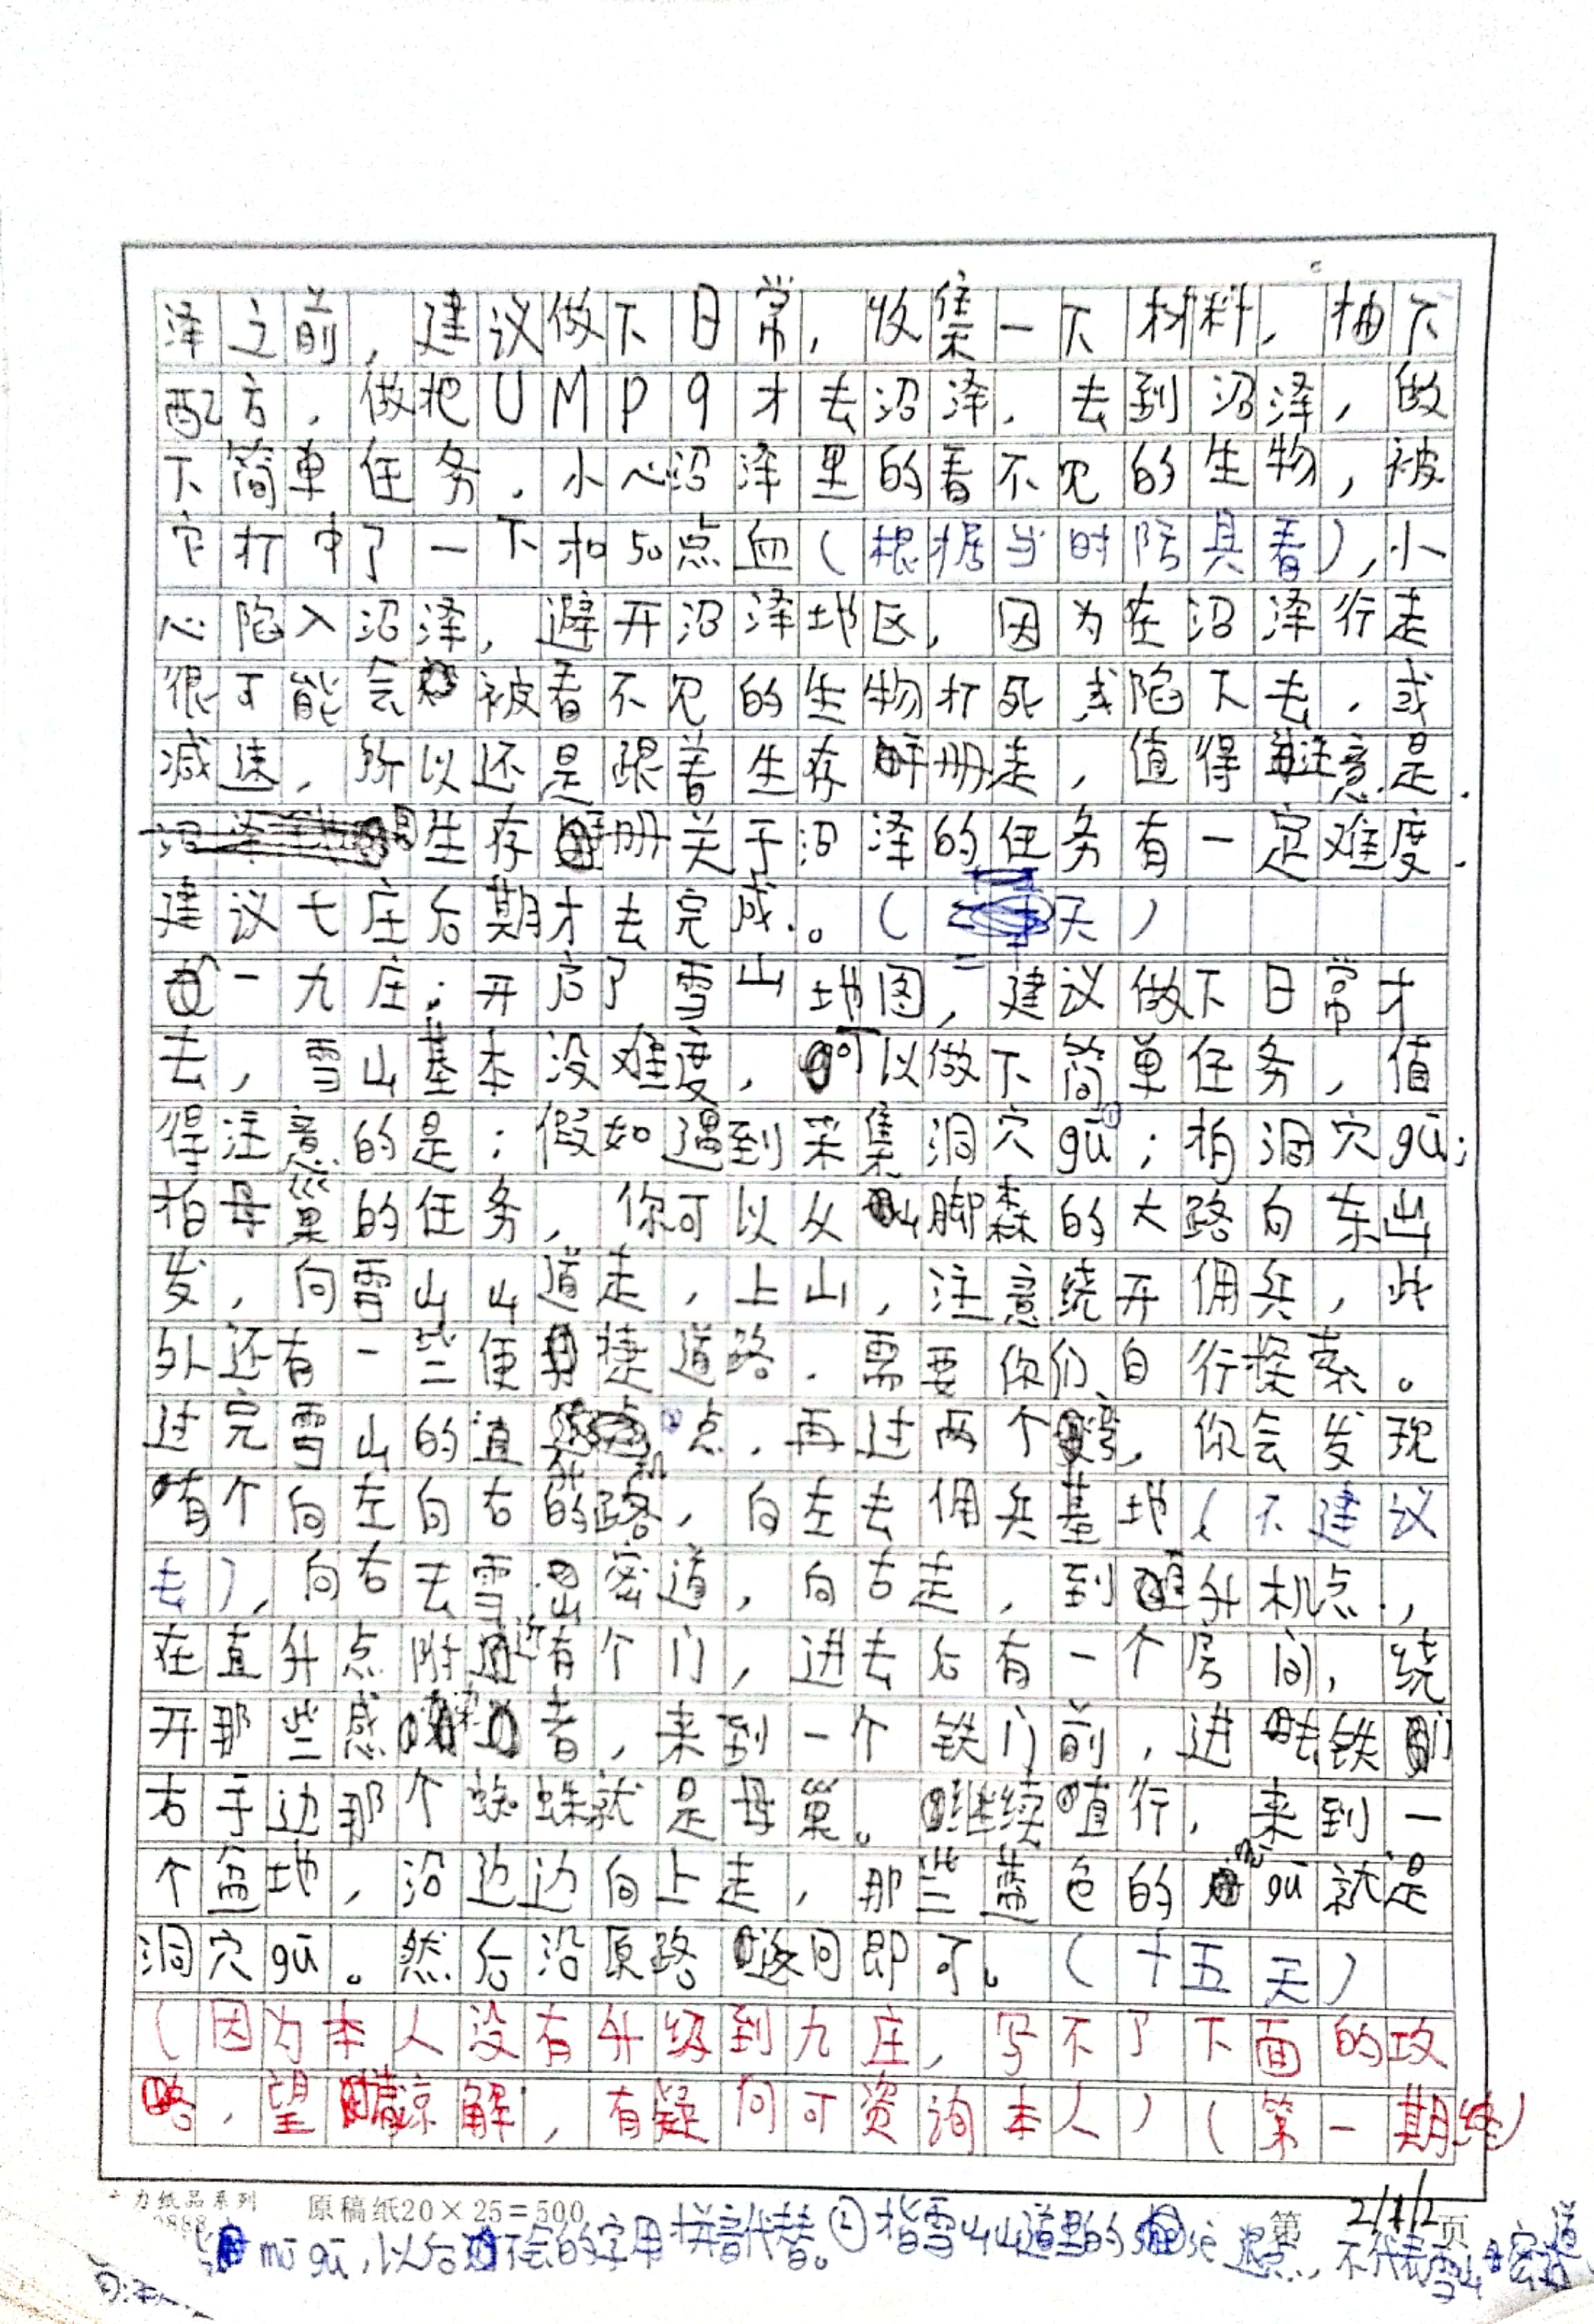 泽之前，建议做下日常，收集一下材料，抽下
配方，做把UMP9才去沼泽，去到沼泽，做
下简单任务，小心沼泽里的看不见的生物，被
它打中了一下扣50点血（根据当时防具看），小
心陷入沼泽，避开沼泽地区，因为在沼泽行走
很可能会被看不见的生物打死，或陷下去，或
减速，所以还是跟着生存手册走，值得注意是，
生存手册关于沼泽的任务有一定难度，
建议七庄后期才去完成。（二十天）
一九庄：开启了雪山地图，建议做下日常才
去，雪山基本没难度，可以做下简单任务，值
得注意的是：假如遇到采集洞穴gū①；拍洞穴gū；
拍母巢的任务，你可以从山脚森的大路向东出
发，向雪山山道走，上山，注意绕开佣兵，此
外还有一些便捷道路，需要你们自行探索。
过完雪山的直升机②点，再过两个弯，你会发现
有个向左向右的路，向左去佣兵基地（不建议
去），向右去雪山密道，向右走，到直升机点，
在直升点附近有个门，进去后有一个房间，绕
开那些感染者，来到一个铁门前，进去铁门
右手边那个蜘蛛就是母巢。继续直行，来到一
个盆地，沿边边向上走，那些蓝色的mógū就是
洞穴gū。然后沿原路返回即可。（十五天）
（因为本人没有升级到九庄，写不了下面的攻
略，望请谅解，有疑问可资询本人）（第一期终）
力纸品系列 原稿纸20×25=500 第 2/1/2 页
mō gū，以后不会的字用拼音代替。②指雪山山道里的 点，不代表雪山密道